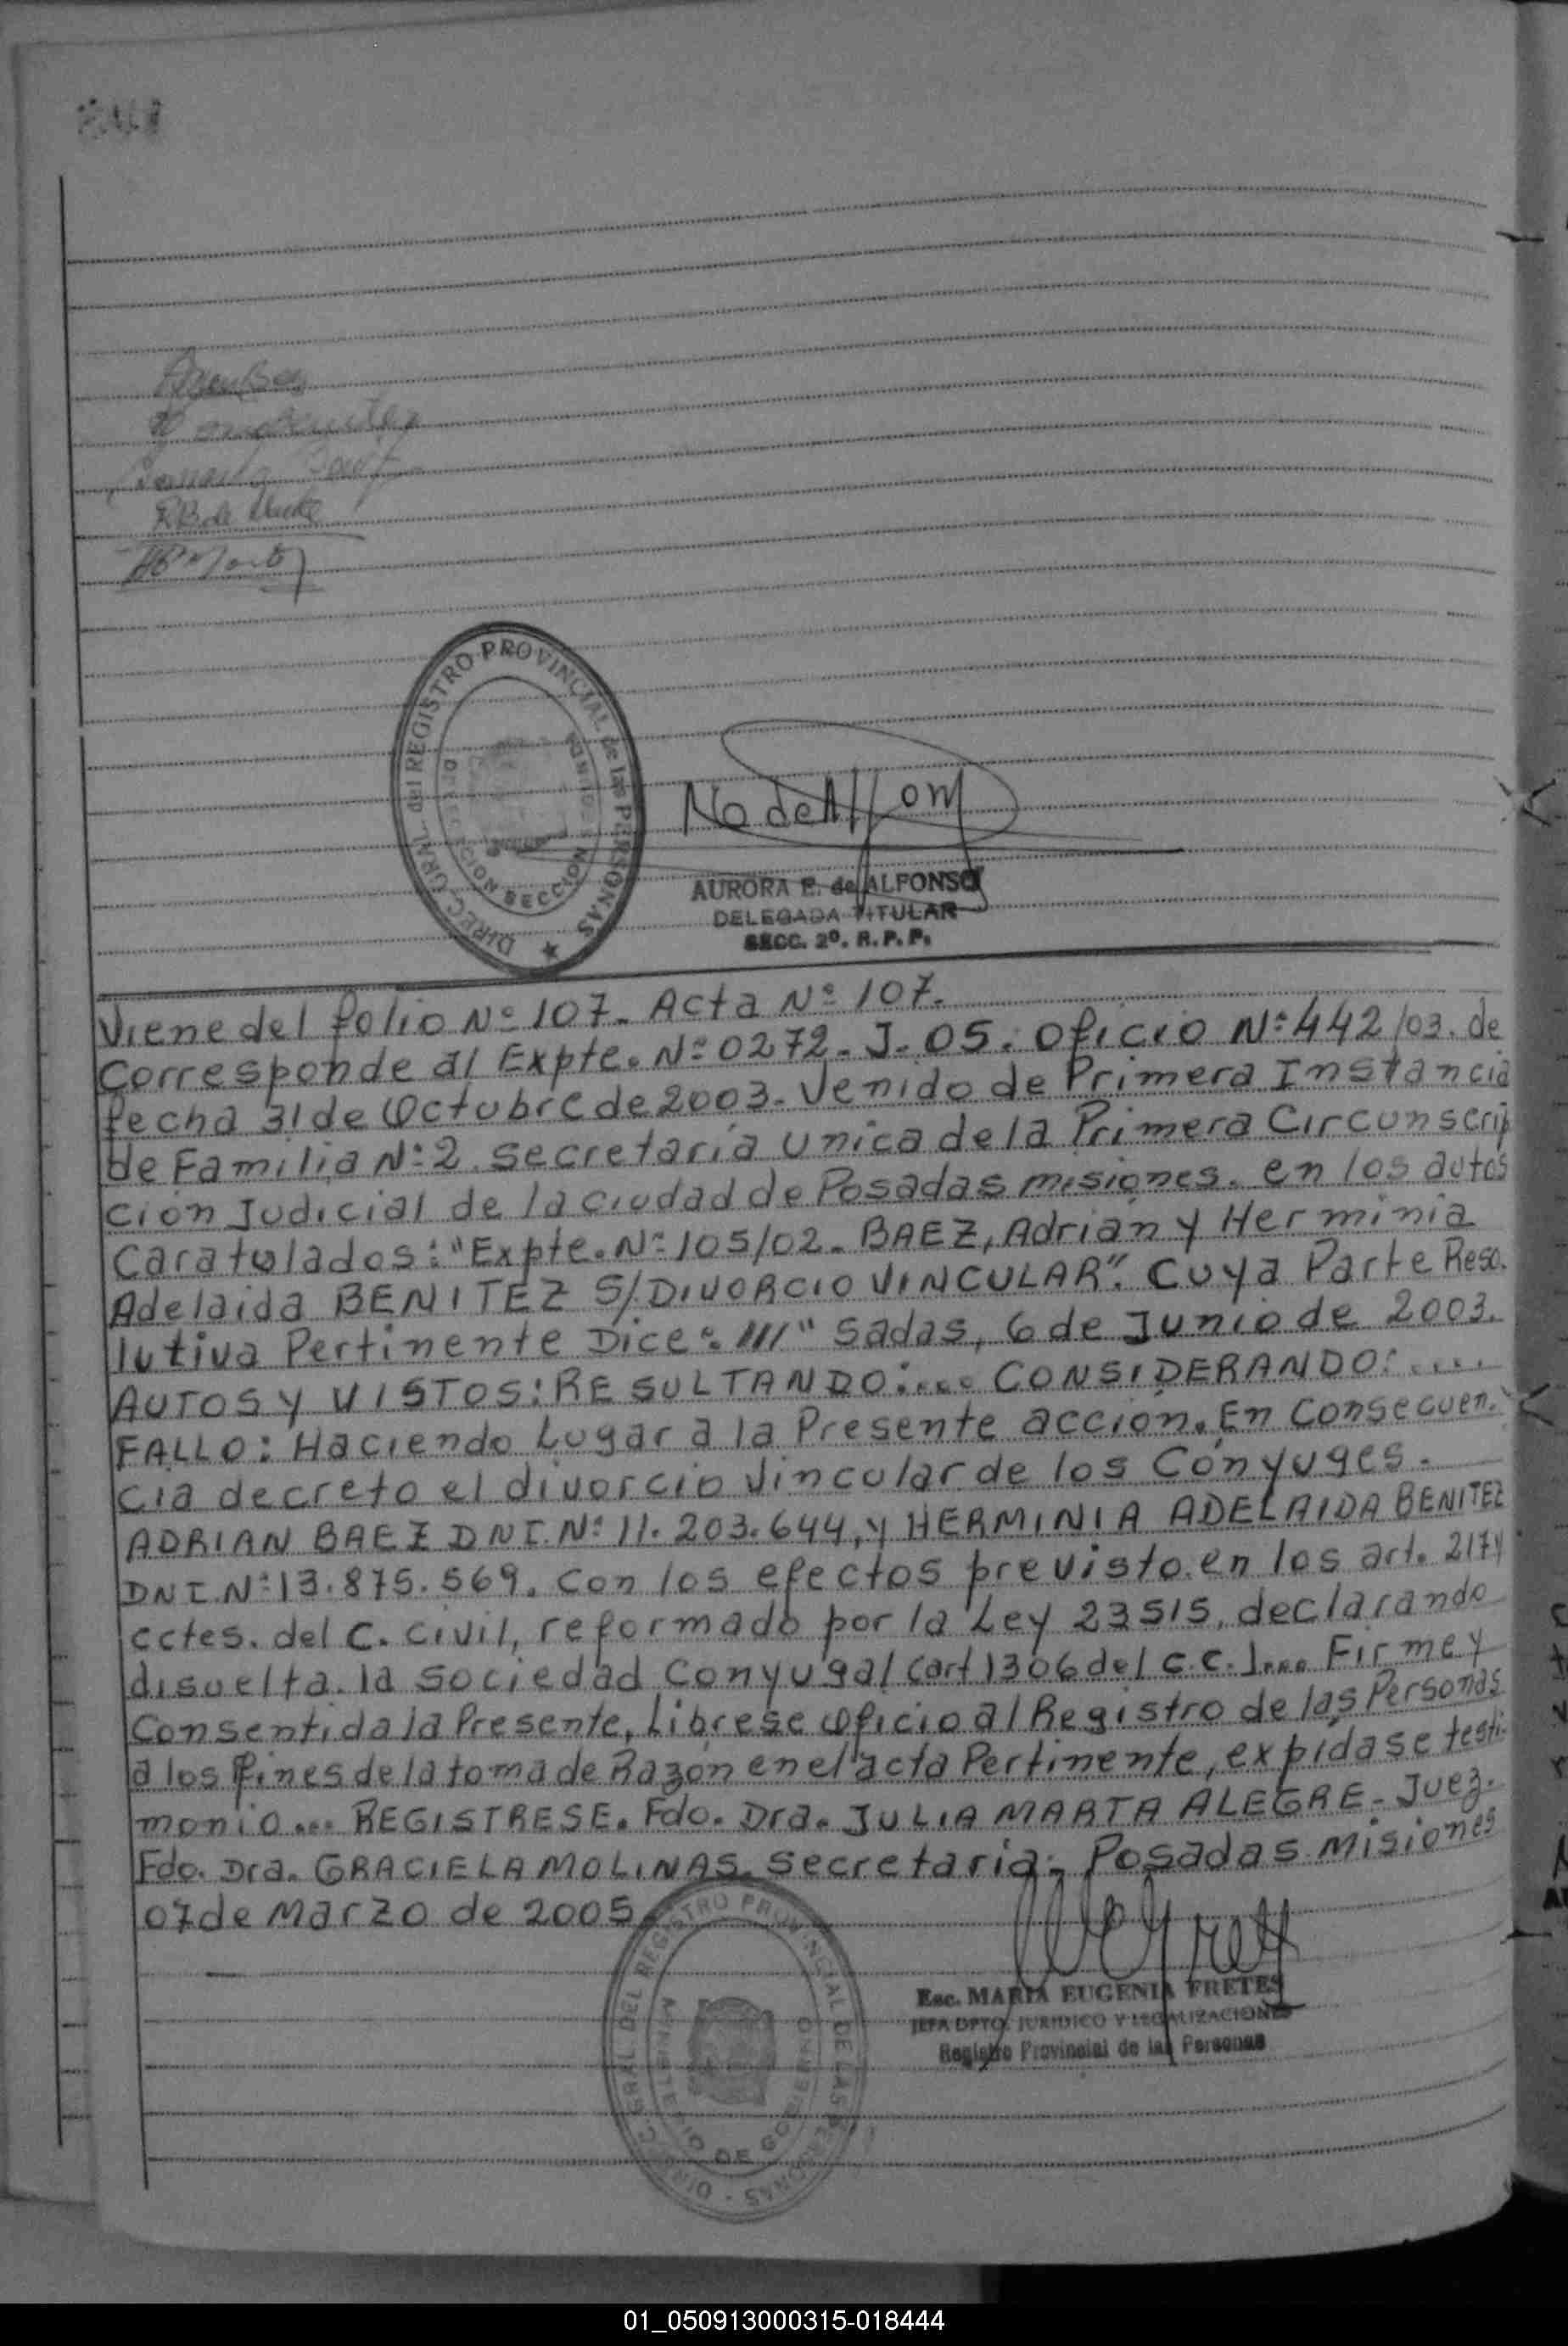 DIREC. GRAL. del REGISTRO PROVINCIAL de las PERSONAS
SECCION
No de Alfons
AURORA E. de ALFONSO
DELEGADA TITULAR
SECC. 2º. R. P. P.
Viene del folio Nº 107. Acta Nº 107.
Corresponde al Expte. Nº 0272. J. 05. Oficio Nº 442/03. de
fecha 31 de Octubre de 2003. Venido de Primera Instancia
de Familia Nº 2. Secretaría Unica de la Primera Circunscrip
ción Judicial de la ciudad de Posadas misiones. en los autos
Caratulados: "Expte. Nº 105/02. BAEZ, Adrián y Herminia
Adelaida BENITEZ S/DIVORCIO VINCULAR". Cuya Parte Reso.
lutiva Pertinente Dice: ///" sadas, 6 de Junio de 2003.
AUTOS Y VISTOS: RESULTANDO:.... CONSIDERANDO:....
FALLO: Haciendo Lugar a la Presente acción. En Consecuen.
cia decreto el divorcio Vincular de los Cónyuges.
ADRIAN BAEZ DNI. Nº 11. 203. 644, y HERMINIA ADELAIDA BENITEZ
DNI. Nº 13. 875. 569. Con los efectos previsto en los art. 217 y
cctes. del C. Civil, reformado por la Ley 23515, declarando
disuelta la Sociedad Conyugal (art 1306 del C.C.).... Firme y
Consentida la Presente, Líbrese Oficio al Registro de las Personas
a los fines de la toma de Razón en el acta Pertinente, expídase testi-
monio... REGISTRESE. Fdo. Dra. JULIA MARTA ALEGRE - Juez.
Fdo. Dra. GRACIELA MOLINAS. Secretaria. Posadas Misiones
07 de Marzo de 2005
DIREC. GRAL DEL REGISTRO PROVINCIAL DE LAS PERSONAS
MINISTERIO DE GOBIERNO
Esc. MARIA EUGENIA FRETES
JEFA DPTO. JURIDICO Y LEGALIZACIONES
Registro Provincial de las Personas
01_050913000315-018444